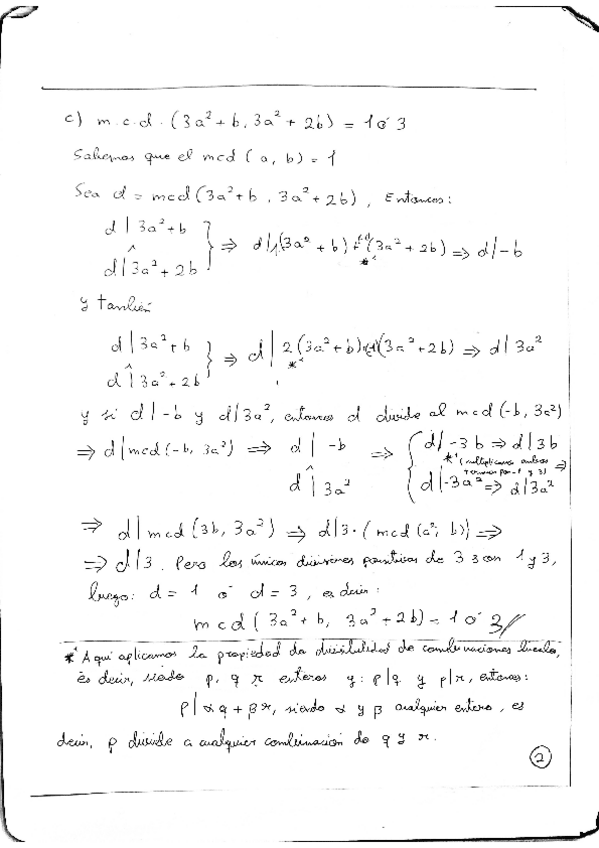 c) m.c.d. (3a² + b, 3a² + 2b) = 1 ó 3
Sabemos que el mcd (a, b) = 1
Sea d = mcd (3a² + b, 3a² + 2b), Entonces:
d | 3a² + b
^
d | 3a² + 2b } ⇒ d | 1(3a² + b) + (-1)(3a² + 2b) ⇒ d | -b
*¹
y también
d | 3a² + b
^
d | 3a² + 2b } ⇒ d | 2(3a² + b) + (-1)(3a² + 2b) ⇒ d | 3a²
*¹
y si d | -b y d | 3a², entonces d divide al mcd (-b, 3a²)
⇒ d | mcd (-b, 3a²) ⇒ d | -b ^ d | 3a² ⇒ { d | -3b ⇒ d | 3b
*¹ (multiplicamos ambos
terminos por -1 y 3)
d | -3a² ⇒ d | 3a² ⇒
⇒ d | mcd (3b, 3a²) ⇒ d | 3·(mcd (a², b)) ⇒
⇒ d | 3. Pero los únicos divisores positivos de 3 son 1 y 3,
luego: d = 1 ó d = 3, es decir:
mcd (3a² + b, 3a² + 2b) = 1 ó 3 //
*¹ Aquí aplicamos la propiedad de divisibilidad de combinaciones lineales,
es decir, siendo p, q r enteros y: p | q y p | r, entonces:
p | αq + βr, siendo α y β cualquier entero, es
decir, p divide a cualquier combinación de q y r.
2